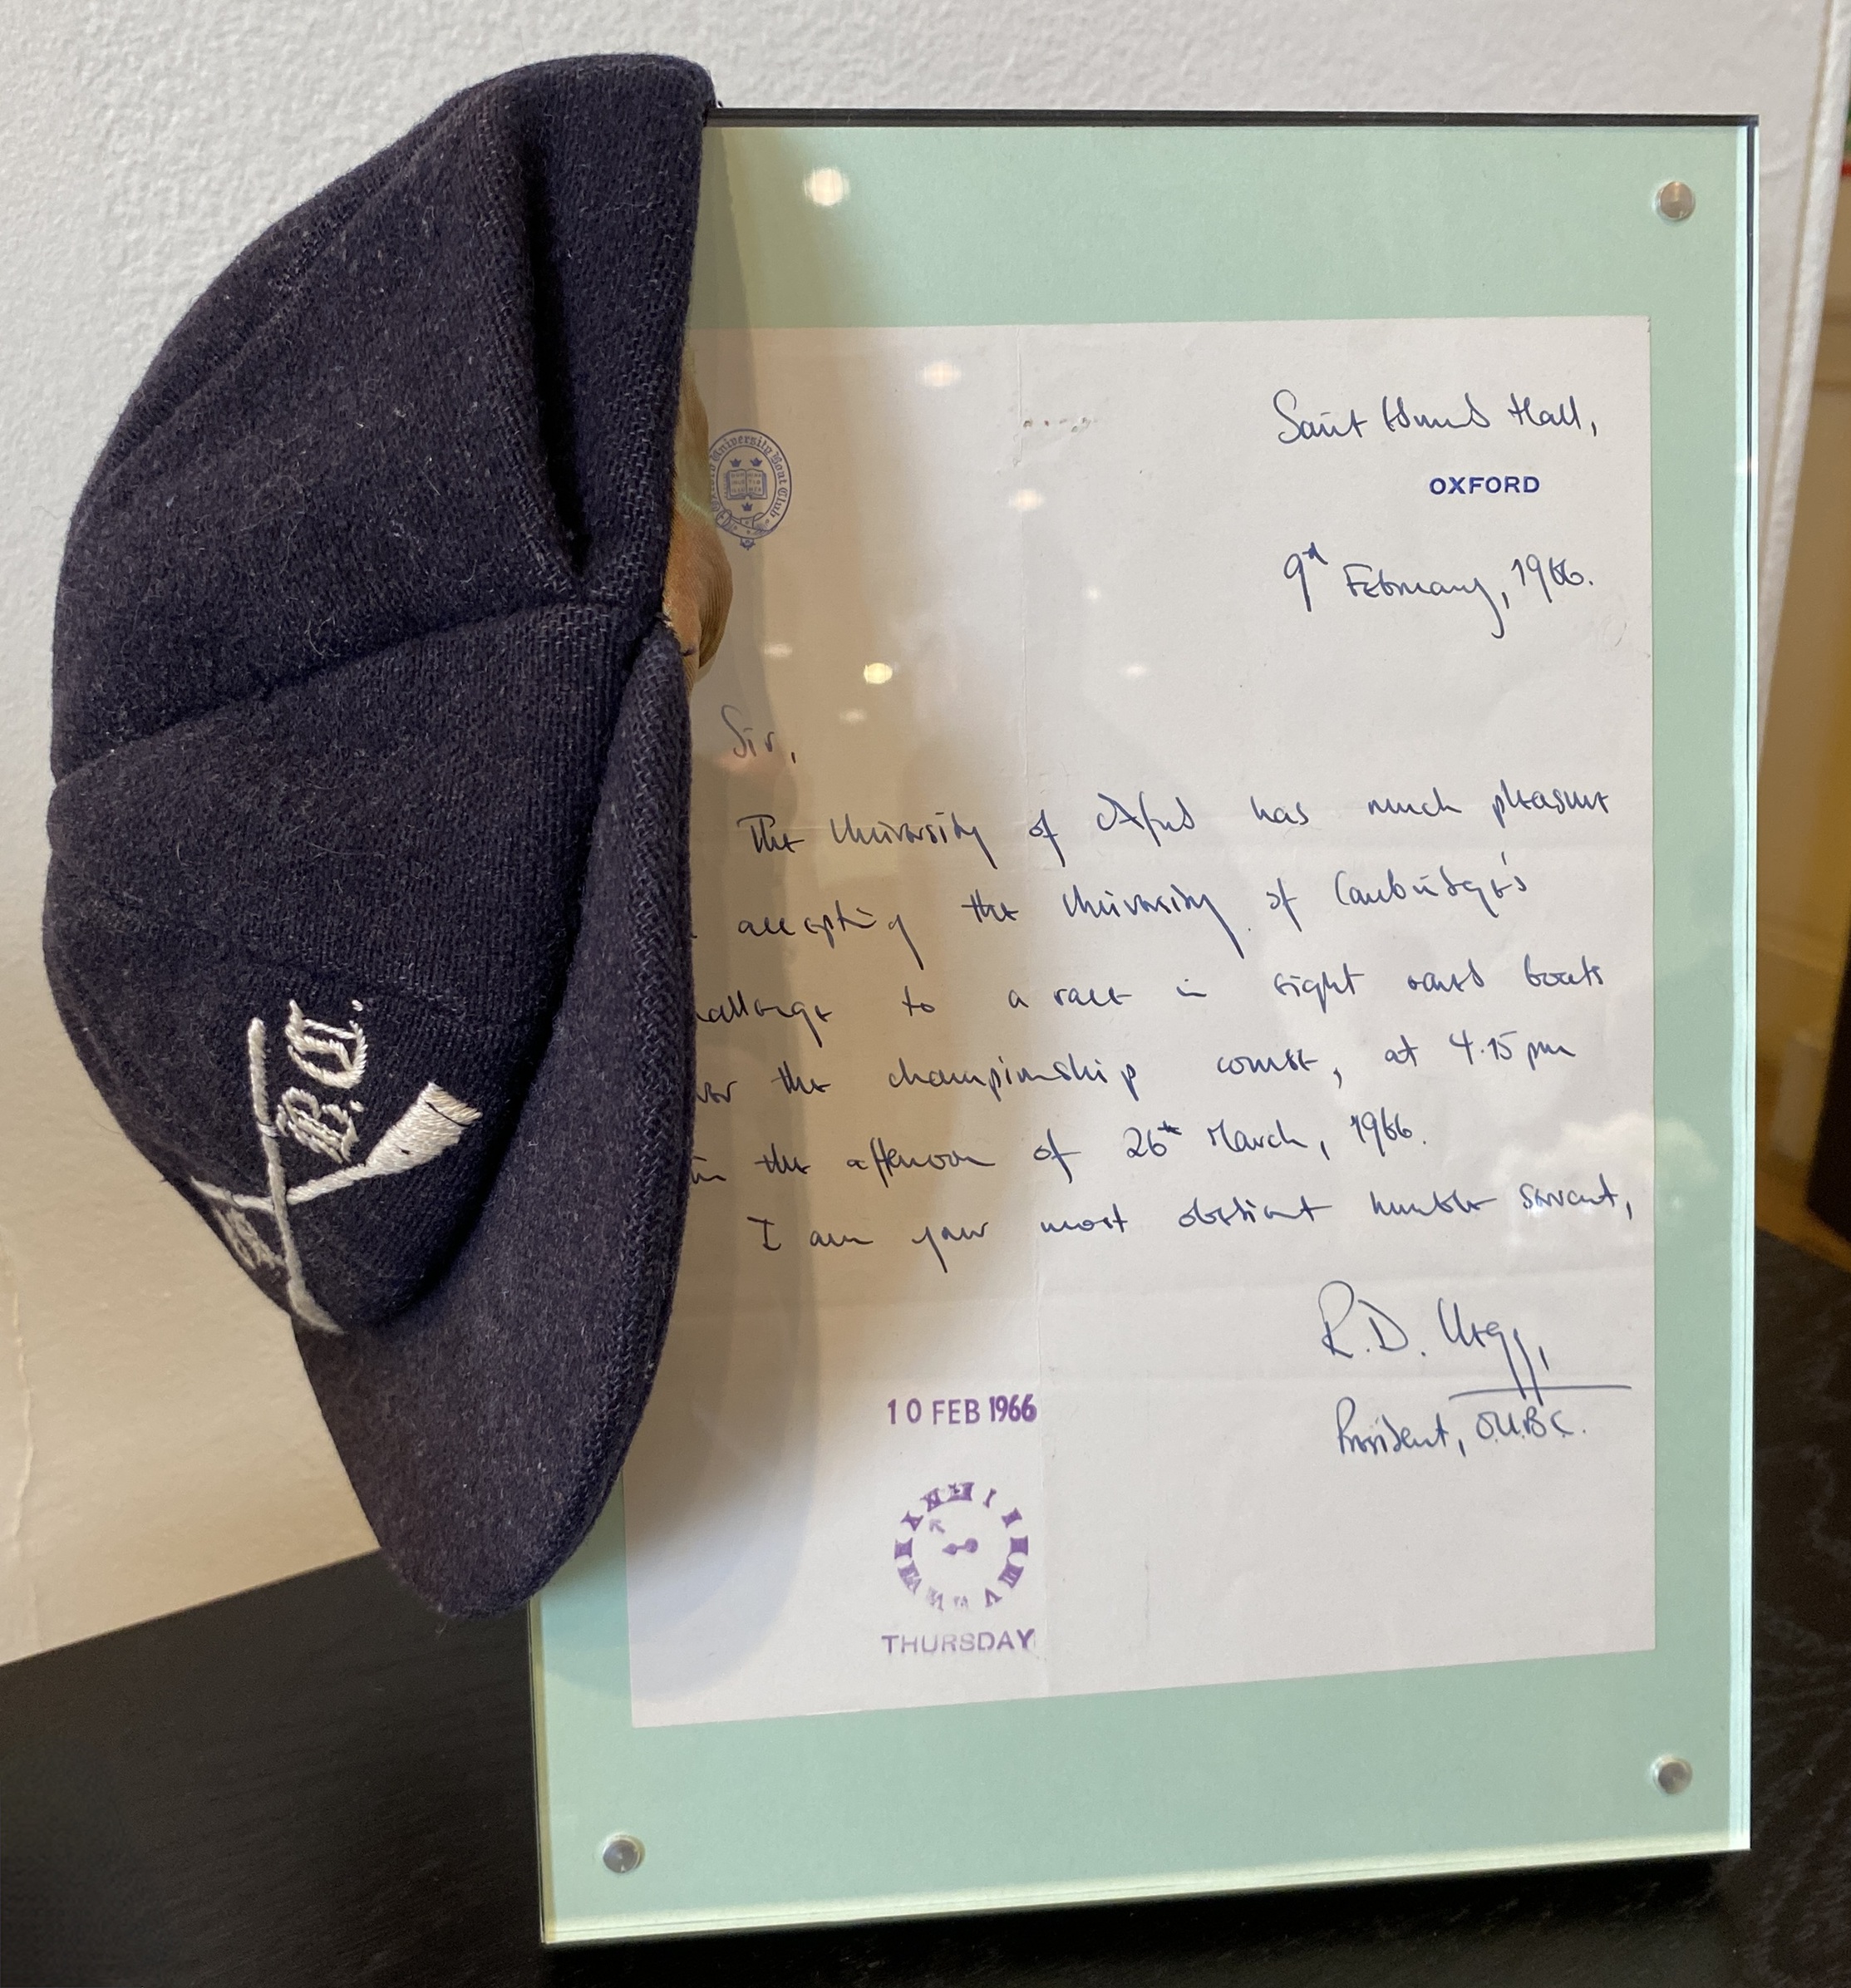 B.C.
Oxford University Boat Club
Saint Edmund Hall,
OXFORD
9th February, 1966.
Sir,
The University of Oxford has much pleasure
accepting the University of Cambridge's
hallenge to a race in eight oared boats
ver the championship course, at 4.15 pm
in the afternoon of 26th March, 1966.
I am your most obedient humble servant,
R.D.
President, O.U.B.C.
10 FEB 1966
THURSDAY